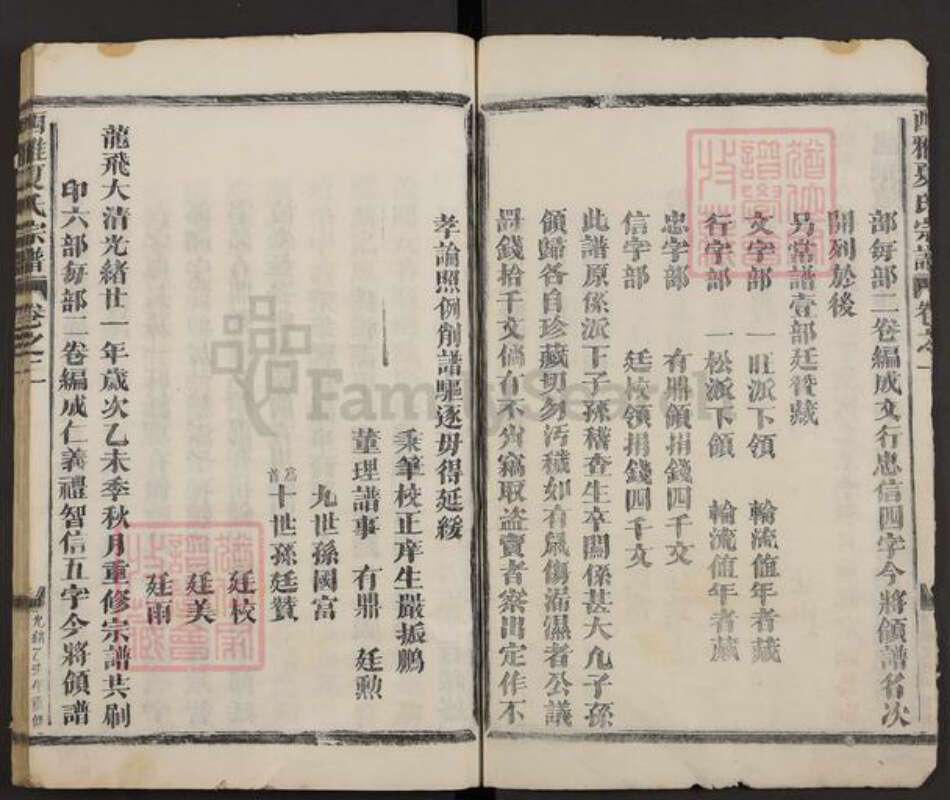 酉雅夏氏宗譜 卷之一
部每部二卷編成文行忠信四字今將領譜名次
開列於後
另常譜壹部廷贊藏
文字部 一旺派下領 輪流值年者藏
行字部 一松派下領 輪流值年者藏
忠字部 有鼎領捐錢四千文
信字部 廷校領捐錢四千文
此譜原係派下子孫稽查生卒關係甚大凡子孫
領歸各自珍藏切勿汚穢如有鼠傷漏濕者公議
罸錢拾千文倘有不肖竊取盜賣者察出定作不
孝論照例削譜驅逐毋得延緩
秉筆校正庠生嚴振鵬
董理譜事 有鼎 廷勲
九世孫國富
首十世孫廷贊
廷校
廷美
廷雨
龍飛大清光緒廿一年歲次乙未季秋月重修宗譜共刷
印六部每部二卷編成仁義禮智信五字今將領譜
雅夏氏宗譜 卷之一
FamilySearch